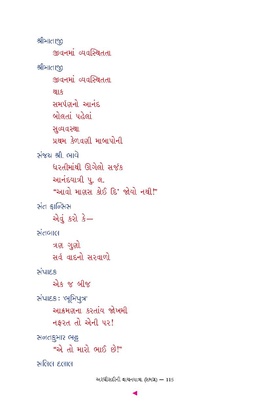 શ્રીમાતાજી
જીવનમાં વ્યવસ્થિતતા
શ્રીમાતાજી
જીવનમાં વ્યવસ્થિતતા
થાક
સમર્પણનો આનંદ
બોલતાં પહેલાં
સુવ્યવસ્થા
પ્રથમ કેળવણી માબાપોની
સંજય શ્રી. ભાવે
ધરતીમાંથી ઊગેલો સર્જક
આનંદયાત્રી પુ. લ.
“આવો માણસ કોઈ દિ' જોયો નથી!”
સંત ફ્રાન્સિસ
એવું કરો કે—
સંતબાલ
ત્રણ ગુણો
સર્વ વાદનો સરવાળો
સંપાદક
એક જ બીજ
સંપાદક: ‘ભૂમિપુત્ર’
આક્રમણના કરતાંય જોખમી
નફરત તો એની પર!
સનતકુમાર ભટ્ટ
“એ તો મારો ભાઈ છે!”
સલિલ દલાલ
અરધીસદીની વાચનયાત્રા (સમગ્ર) — 115